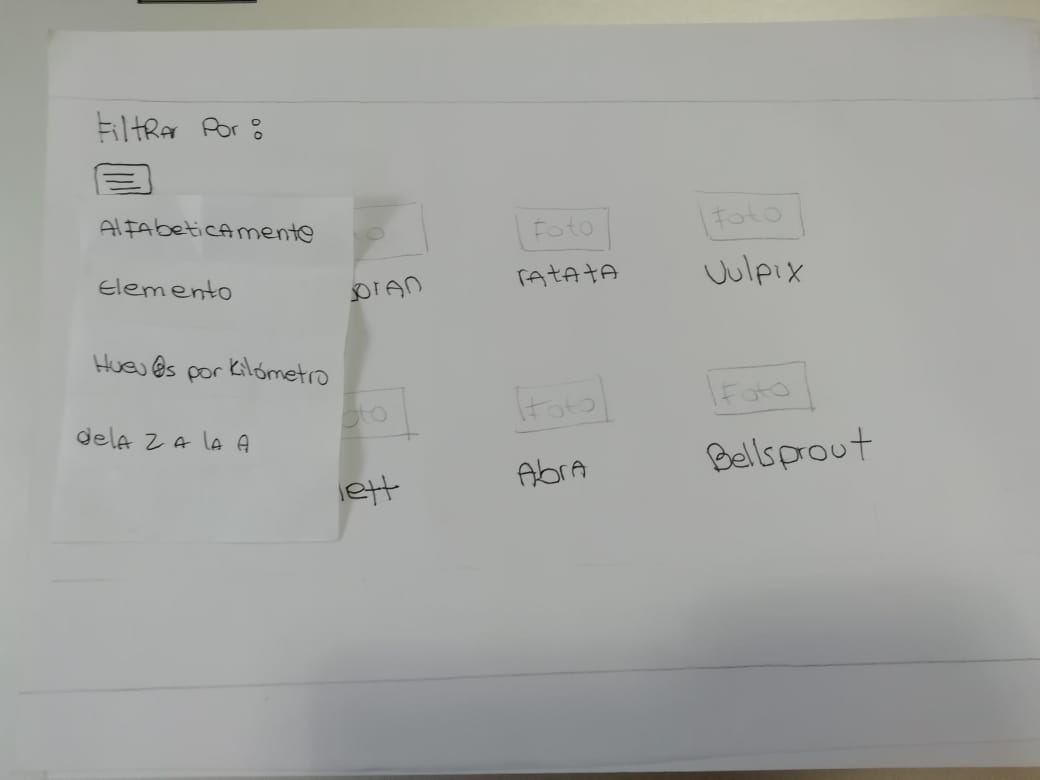 Filtrar Por:
Alfabeticamento
Elemento
Huevos por Kilómetro
dela Z A la A
Foto
Foto
oran
ratata
Vulpix
oto
Foto
Foto
lett
Abra
Bellsprout